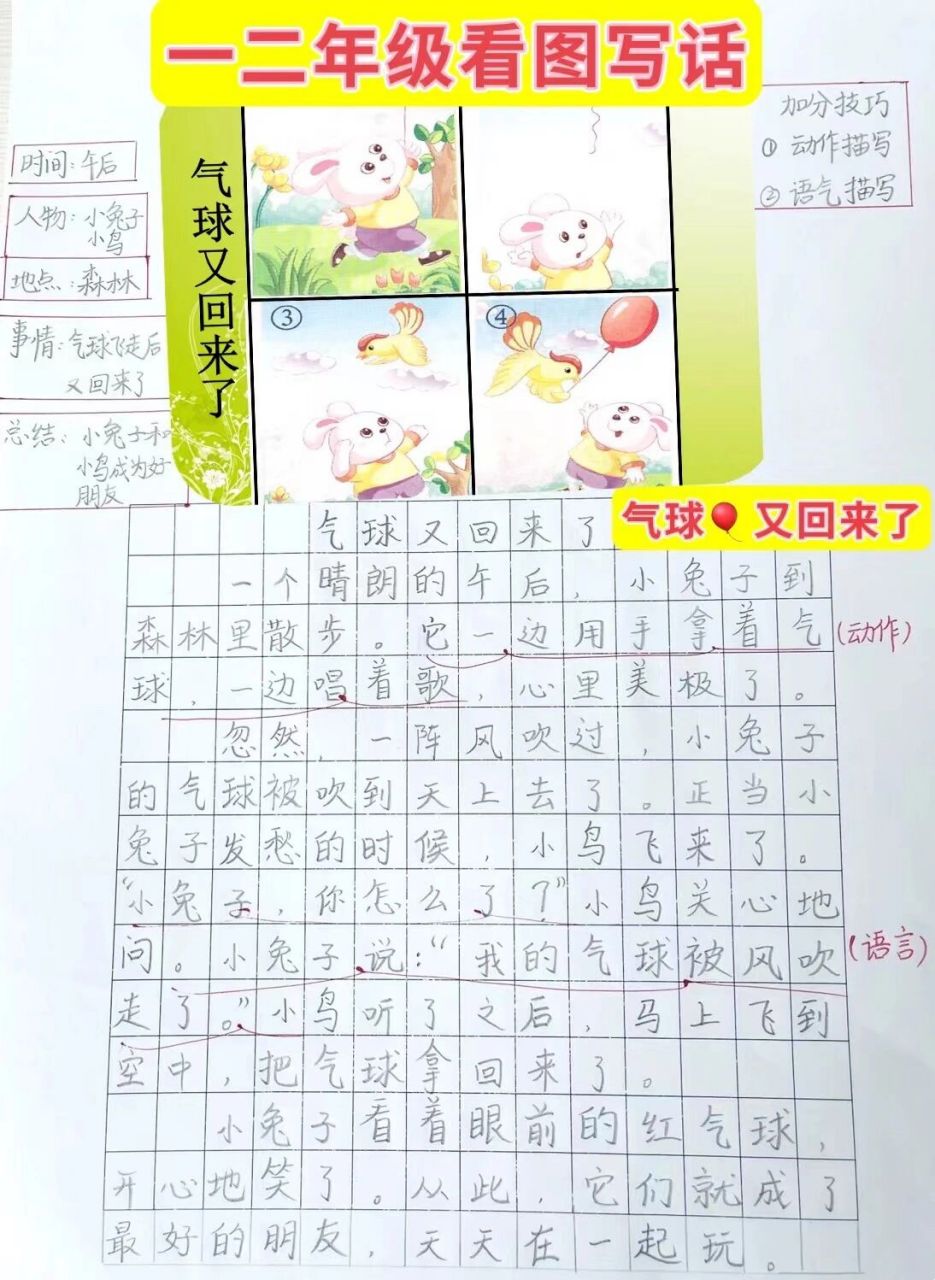 一二年级看图写话
时间：午后
人物：小兔子
小鸟
地点：森林
事情：气球飞走后
又回来了
总结：小兔子和
小鸟成为好
朋友
气球又回来了
③
④
加分技巧
① 动作描写
② 语气描写
气球🎈又回来了
气球又回来了
一个晴朗的午后，小兔子到
森林里散步。它一边用手拿着气
球，一边唱着歌，心里美极了。
(动作)
忽然，一阵风吹过，小兔子
的气球被吹到天上去了。正当小
兔子发愁的时候，小鸟飞来了。
“小兔子，你怎么了？”小鸟关心地
问。小兔子说：“我的气球被风吹
(语言)
走了。”小鸟听了之后，马上飞到
空中，把气球拿回来了。
小兔子看着眼前的红气球，
开心地笑了。从此，它们就成了
最好的朋友，天天在一起玩。